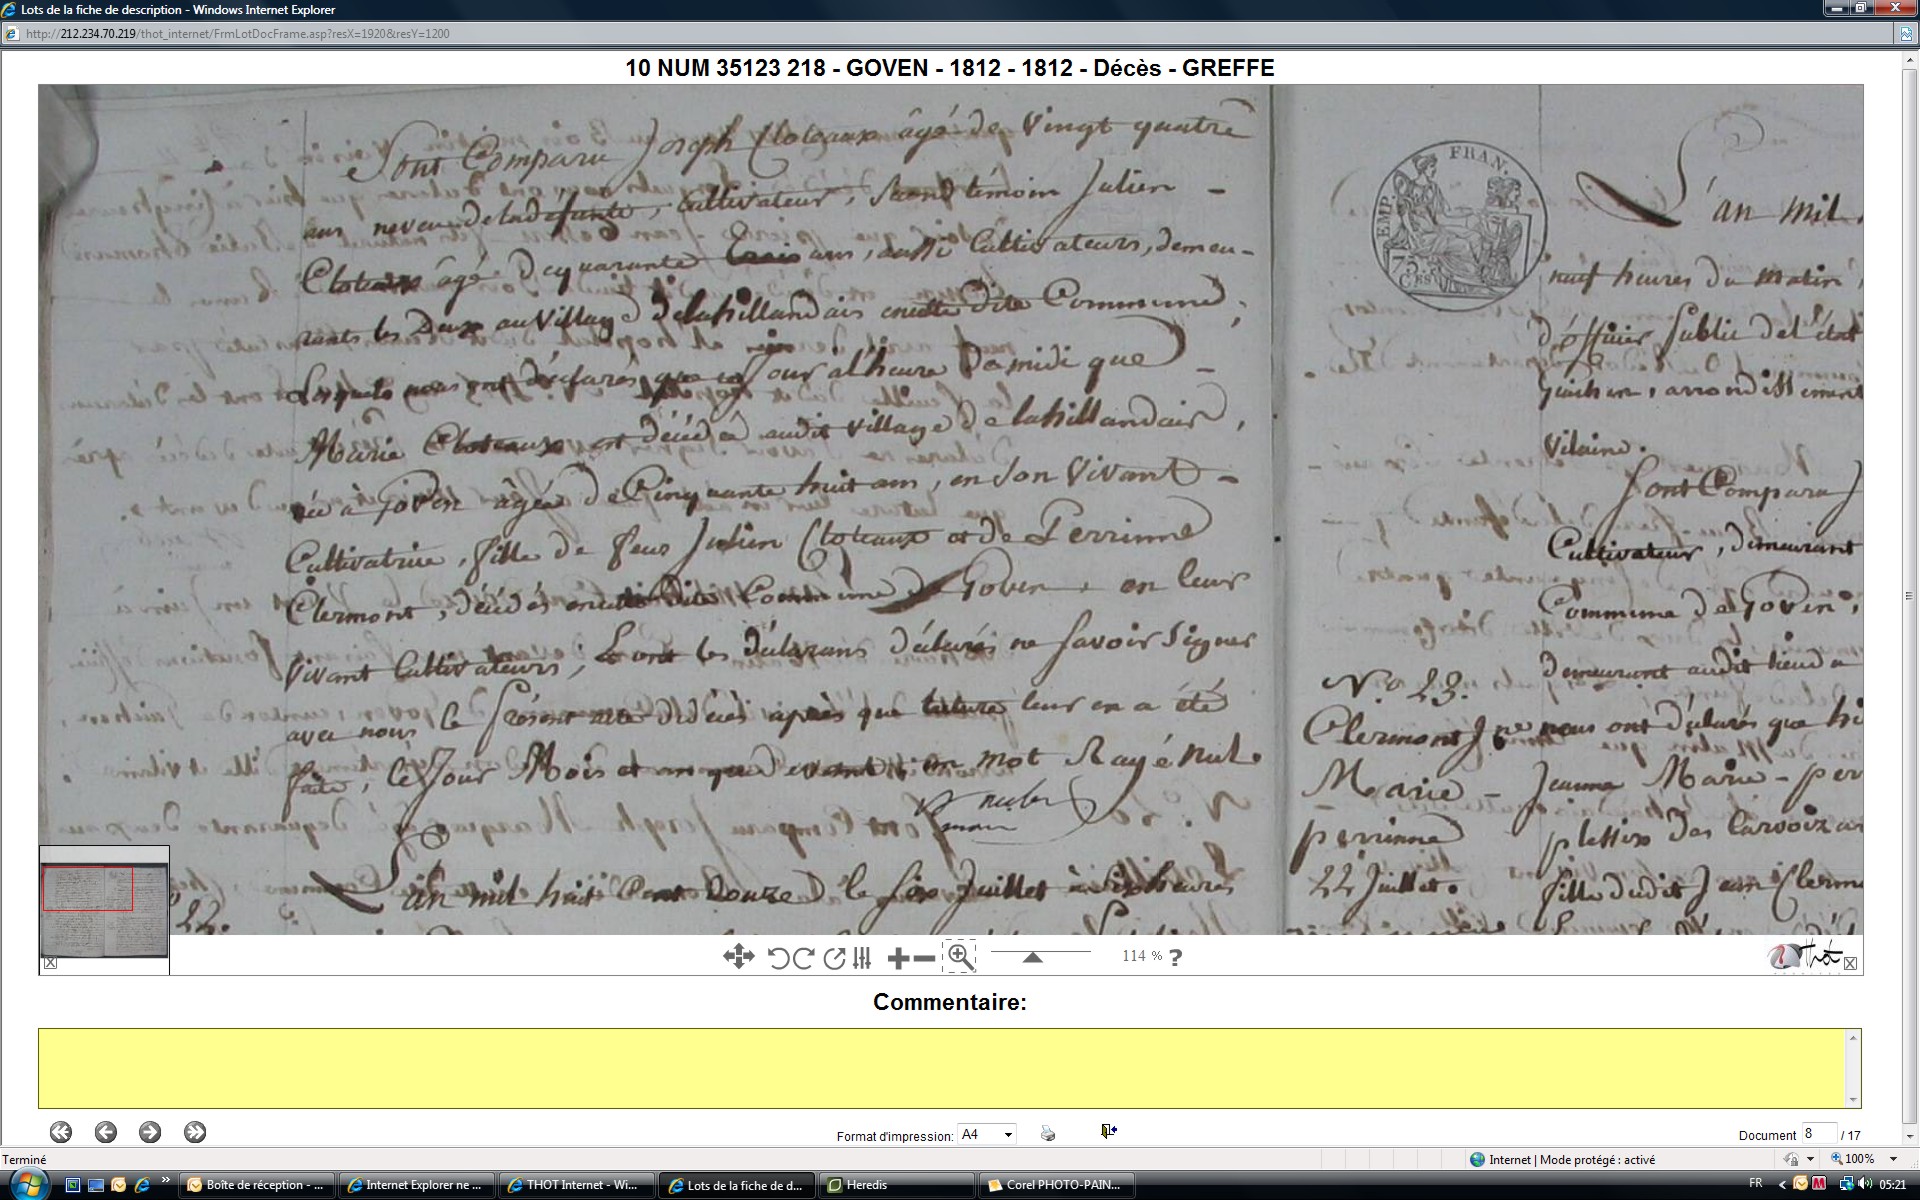 Lots de la fiche de description - Windows Internet Explorer
http://212.234.70.219/thot_internet/FrmLotDocFrame.asp?resX=1920&resY=1200
10 NUM 35123 218 - GOVEN - 1812 - 1812 - Décès - GREFFE
Sont Comparu Joseph Cloteaux âgé de Vingt quatre
ans neveu de la défunte, Cultivateur, second témoin Julien -
Cloteaux âgé de quarante trois ans, aussi Cultivateurs, demeu-
rants les Deux au Village de la hillandais en cette dite Commune,
Lesquels nous ont déclarés que ce Jour à l'heure De midi que
Marie Cloteaux est décédée audit village de la hillandais,
née à Goven âgée de Cinquante huit ans, en son Vivant -
Cultivatrice, fille de feus Julien Cloteaux et de Perrinne
Clermont, décédés en cette dite Commune de Goven, en leur
vivant Cultivateurs, Et ont les déclarans déclarés ne savoir signer
avec nous le présent acte de décès après que lecture leur en a été
faite, le Jour Mois et an que devant, un mot Rayé Nul.
L'an mil huit Cent Douze le six Juillet à six heures
22.
EMP. FRAN.
75 CES
L'an mil
neuf heures du matin,
d'officier public de l'état
Guichen, arrondissement
Vilaine.
Sont Comparu J
Cultivateur, demeurant
Commune de Goven,
demeurant audit lieu
N.º 23.
Clermont J ne nous ont déclarés que
Marie - Jeanne Marie - per
perrinne
plessix des
22 Juillet. fille dudit Jean Clerm
114 % ?
Thot
Commentaire:
Format d'impression: A4
Document 8 / 17
Terminé
Internet | Mode protégé : activé
100%
Boîte de réception - ...
Internet Explorer ne ...
THOT Internet - Wi...
Lots de la fiche de d...
Heredis
Corel PHOTO-PAIN...
FR
05:21